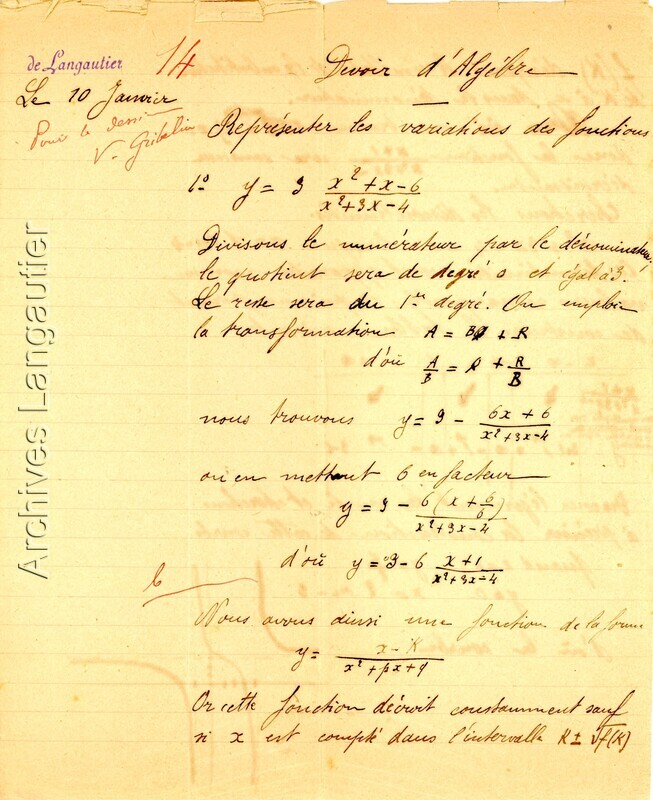 de Langautier
14
Devoir d'Algèbre
Le 10 Janvier
Pour le dessin
V. Gribelin
Représenter les variations des fonctions
1º y = 3 x²+x-6 / x²+3x-4
Divisons le numérateur par le dénominateur,
le quotient sera de degré 0 et égal à 3.
Le reste sera du 1er degré. On emploie
la transformation A = BQ + R
d'où A/B = Q + R/B
nous trouvons y = 3 - 6x+6 / x²+3x-4
ou en mettant 6 en facteur
y = 3 - 6(x+6/6) / x²+3x-4
d'où y = 3-6 x+1 / x²+3x-4
6
Nous avons ainsi une fonction de la forme
y = x-K / x²+px+q
Or cette fonction décroit constamment sauf
si x est compté dans l'intervalle K ± √f(K)
Archives Langautier